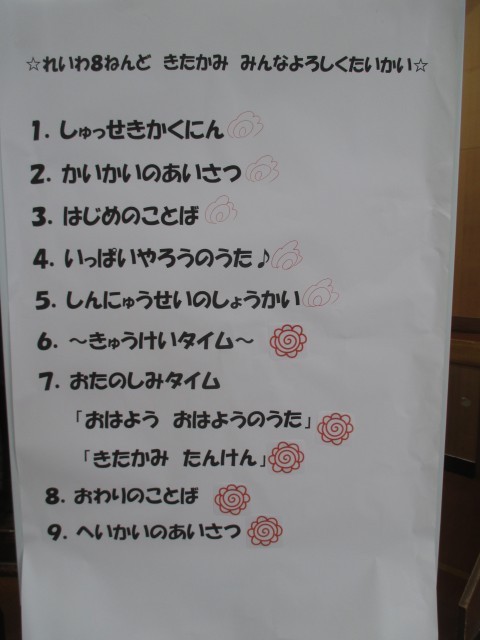 ☆れいわ8ねんど きたかみ みんなよろしくたいかい☆
1. しゅっせきかくにん
2. かいかいのあいさつ
3. はじめのことば
4. いっぱいやろうのうた♪
5. しんにゅうせいのしょうかい
6. ～きゅうけいタイム～
7. おたのしみタイム
「おはよう おはようのうた」
「きたかみ たんけん」
8. おわりのことば
9. へいかいのあいさつ